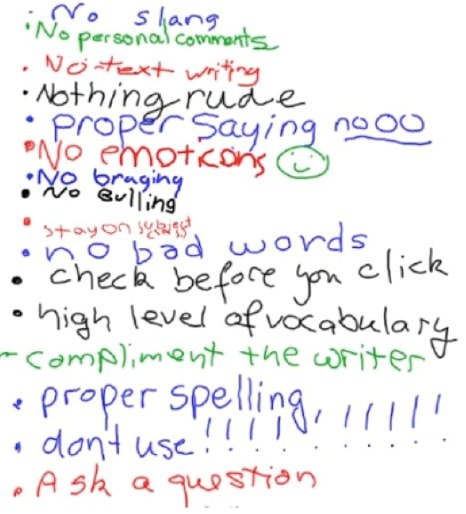 • No slang
• No personal comments
• No text writing
• Nothing rude
• proper saying noOO
• No emoticons
• No braging
• No Bulling
• stay on subject
• no bad words
• check before you click
• high level of vocabulary
- compliment the writer
• proper spelling, ! ! ! ! ! !
• dont use ! ! ! !
• Ask a question